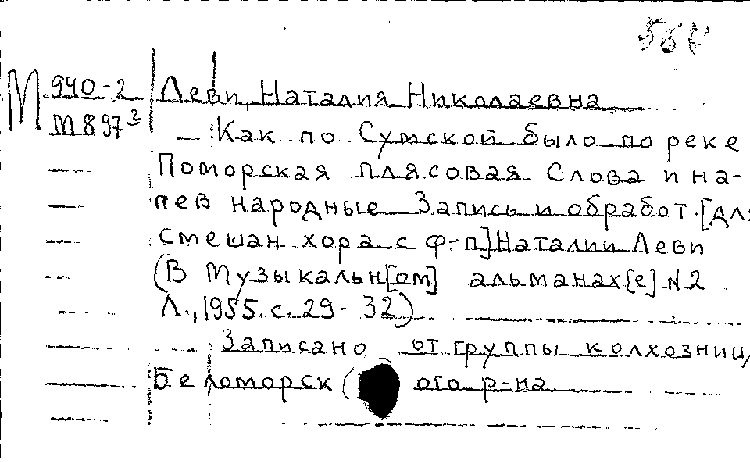 М 940-2 Леви, Наталия Николаевна
М897³
— Как по Сумской было по реке
Поморская плясовая Слова и на-
пев народные Запись и обработ. [для
смешан хора с ф-п] Наталии Леви
(В Музыкальн[ом] альманах[е] №2
Л., 1955. с. 29-32)
Записано от группы колхозниц,
Беломорск( ого р-на